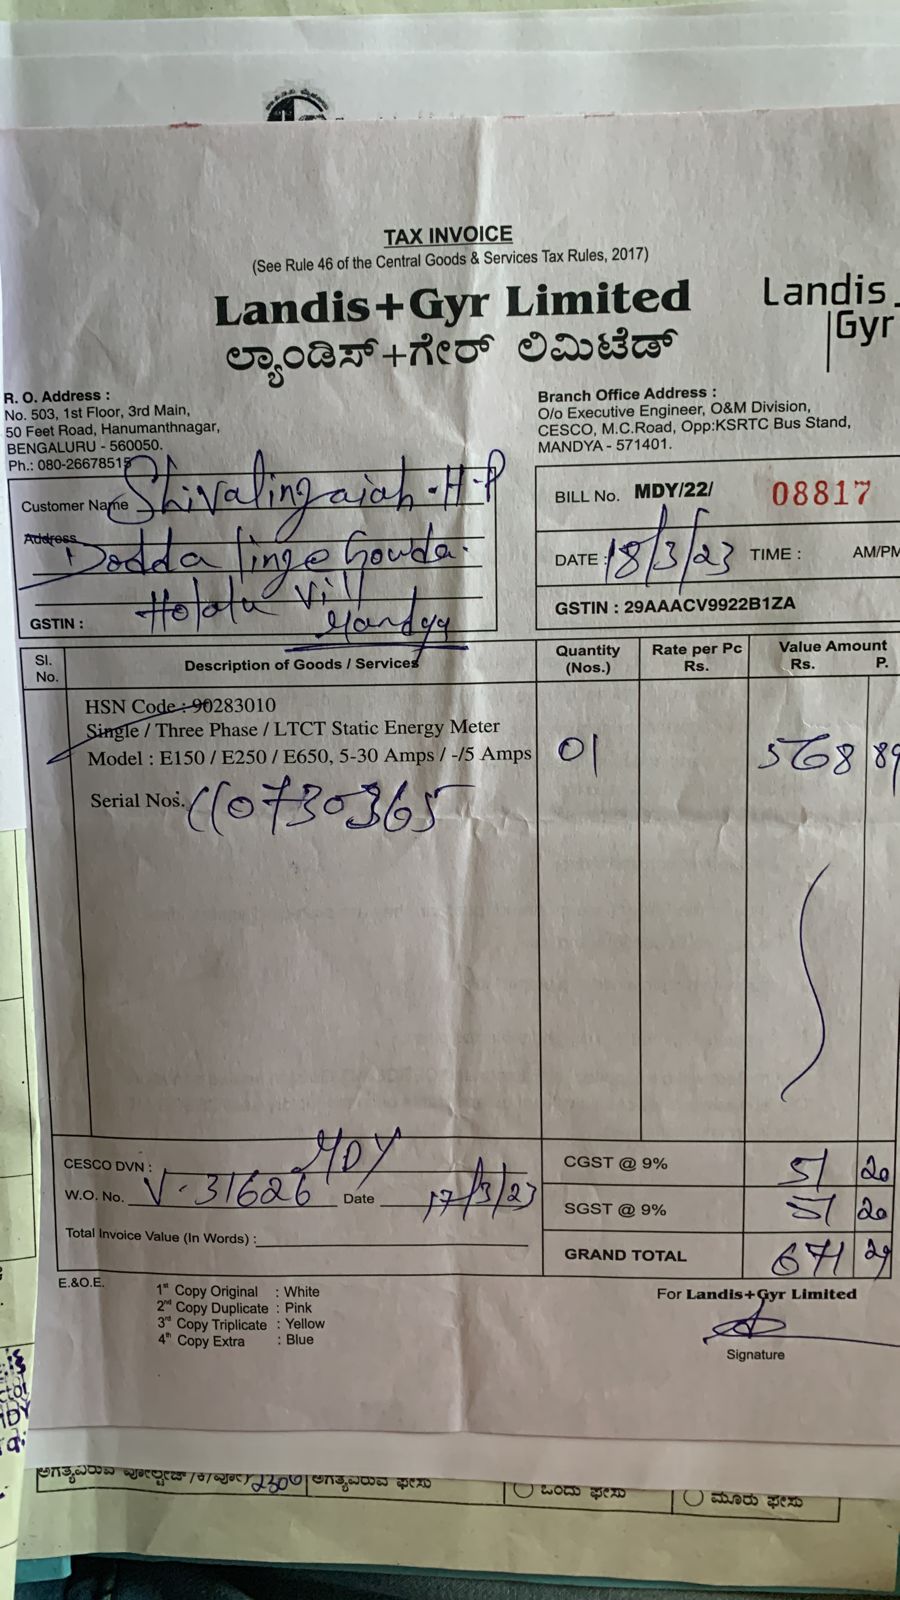 TAX INVOICE
(See Rule 46 of the Central Goods & Services Tax Rules, 2017)
Landis+Gyr Limited
ಲ್ಯಾಂಡಿಸ್+ಗೇರ್ ಲಿಮಿಟೆಡ್
Landis
Gyr
R. O. Address :
No. 503, 1st Floor, 3rd Main,
50 Feet Road, Hanumanthnagar,
BENGALURU - 560050.
Ph.: 080-26678515
Branch Office Address :
O/o Executive Engineer, O&M Division,
CESCO, M.C.Road, Opp:KSRTC Bus Stand,
MANDYA - 571401.
Customer Name Shivalingaiah.H.P
Address Dodda linge Gowda.
Holalu Vill
GSTIN : Mandya
BILL No. MDY/22/ 08817
DATE : 18/3/23 TIME : AM/PM
GSTIN : 29AAACV9922B1ZA
Sl. No. Description of Goods / Services Quantity (Nos.) Rate per Pc Rs. Value Amount Rs. P.
HSN Code : 90283010
Single / Three Phase / LTCT Static Energy Meter
Model : E150 / E250 / E650, 5-30 Amps / -/5 Amps 01 568 89
Serial Nos. 110730365
CESCO DVN : MDY
W.O. No. V-31626 Date 17/3/23
Total Invoice Value (In Words) :
CGST @ 9% 51 20
SGST @ 9% 51 20
GRAND TOTAL 671 29
E.&O.E.
1st Copy Original : White
2nd Copy Duplicate : Pink
3rd Copy Triplicate : Yellow
4th Copy Extra : Blue
For Landis+Gyr Limited
Signature
ಒಂದು ಫೇಸು
ಮೂರು ಫೇಸು